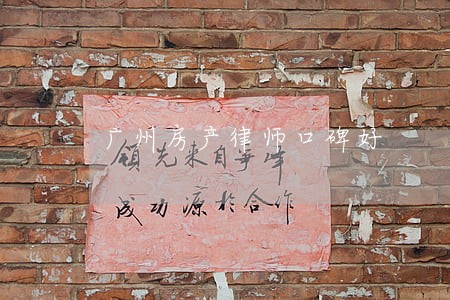 广州房产律师口碑好
领先来自争
成功源於合作